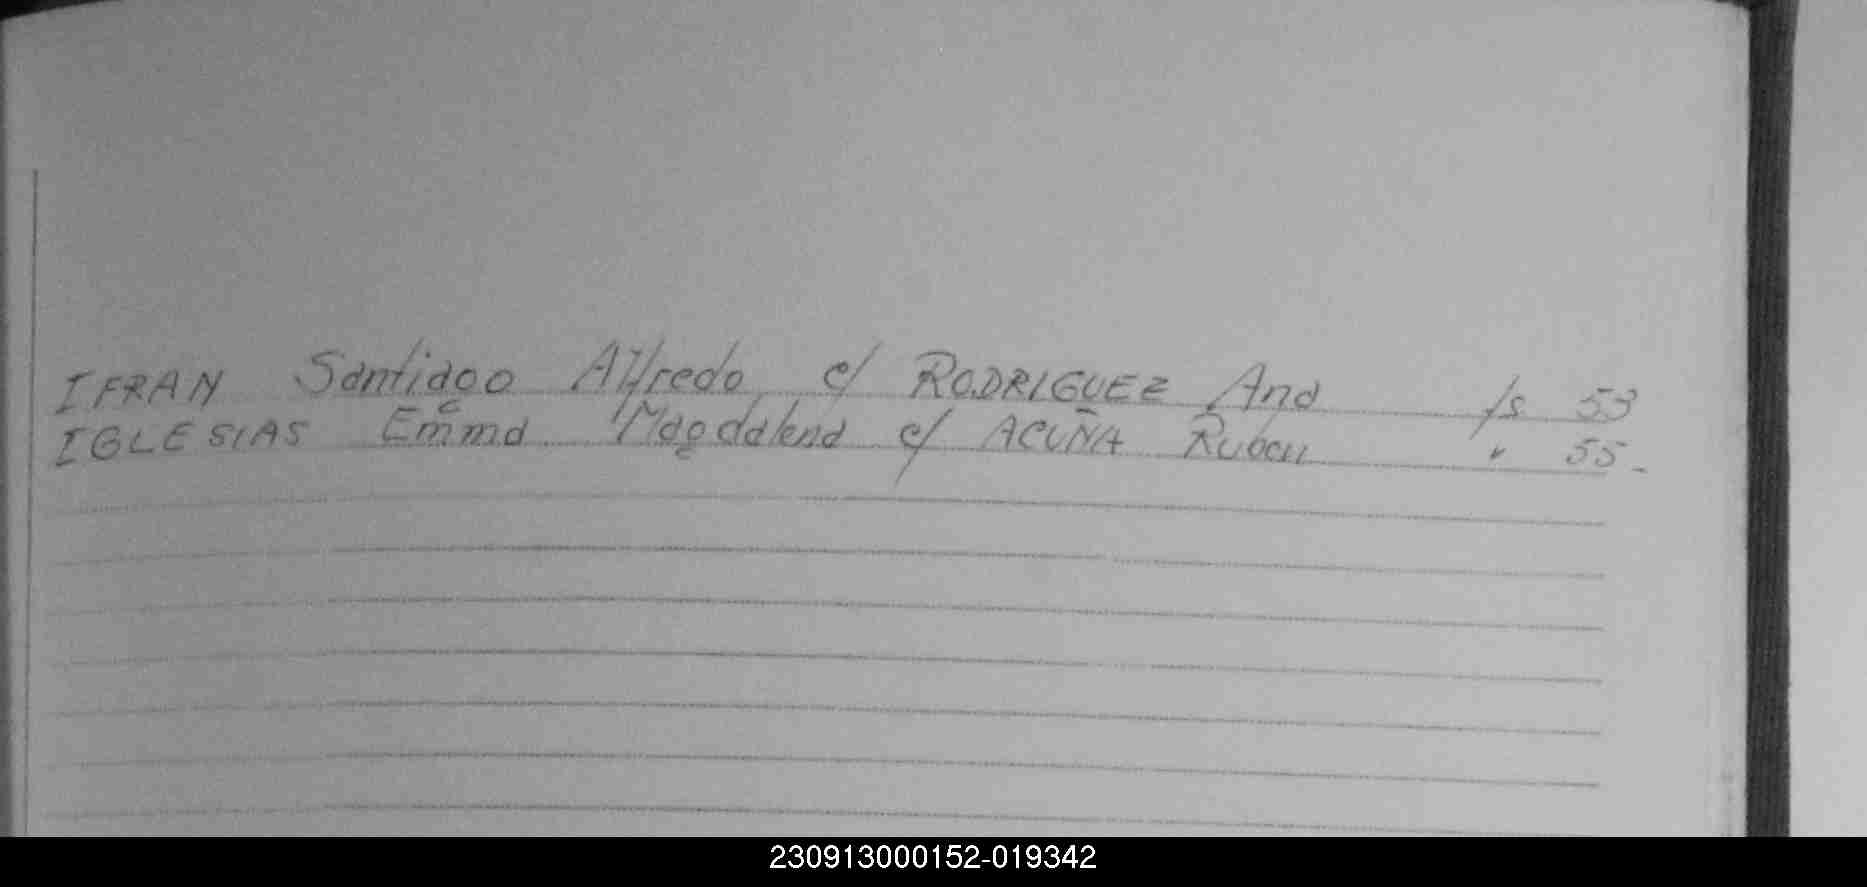 IFRAN Santiago Alfredo c/ RODRIGUEZ Ana /s 53
IGLESIAS Emma Magdalena c/ ACUÑA Ruben " 55-
230913000152-019342